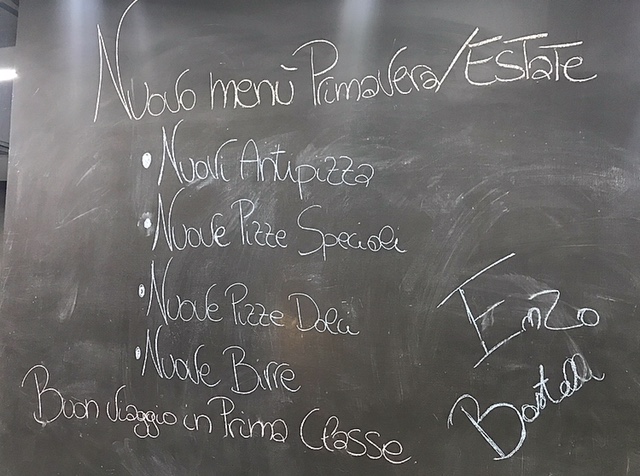 Nuovo menù Primavera/Estate
• Nuovi Antipizza
• Nuove Pizze Speciali
• Nuove Pizze Dolci
• Nuove Birre
Buon viaggio in Prima Classe
Enzo